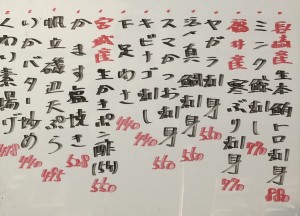 長崎産 生本鮪トロ刺身 880
ミンク鯨刺身
福井産 寒ぶり刺身 770
ヤガラ刺身 550
活〆真鯛刺身 550
スマガツオ刺身 550
キビナゴ刺し 440
下足わさ 440
宮城産 生かきポン酢(5ケ) 550
かます塩焼き 528
帆立磯辺天ぷら 495
いかバター炒め 440
くわい素揚げ 418